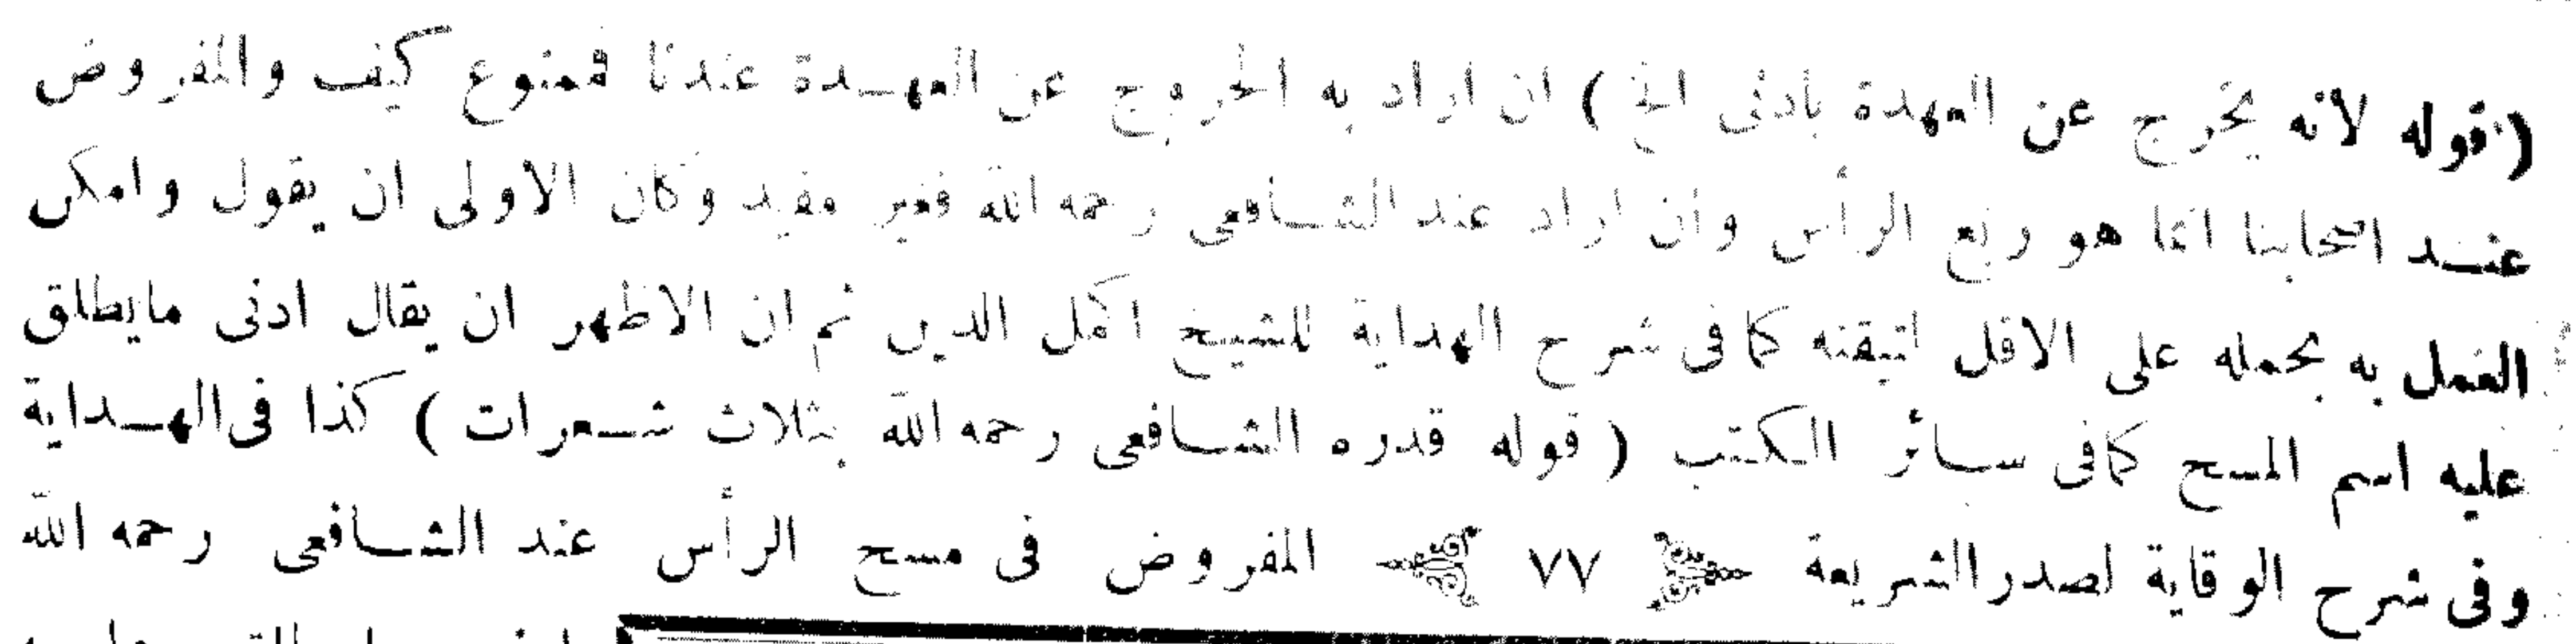 (قوله لانه يخرج عن العهدة بأدنى الخ) ان اراد به الخروج عن العهدة عندنا فممنوع كيف والمفروض
عند اصحابنا انما هو ربع الرأس وان اراد عند الشافعى رحمه الله فغير مفيد وكان الاولى ان يقول وامكن
العمل به بحمله على الاقل لتيقنه كما فى شرح الهداية للشيخ اكمل الدين ثم ان الاظهر ان يقال ادنى مايطلق
عليه اسم المسح كمافى سائر الكتب (قوله قدره الشافعى رحمه الله بثلاث شعرات) كذا فى الهداية
وفى شرح الوقاية لصدر الشريعة ٧٧ المفروض فى مسح الرأس عند الشافعى رحمه الله